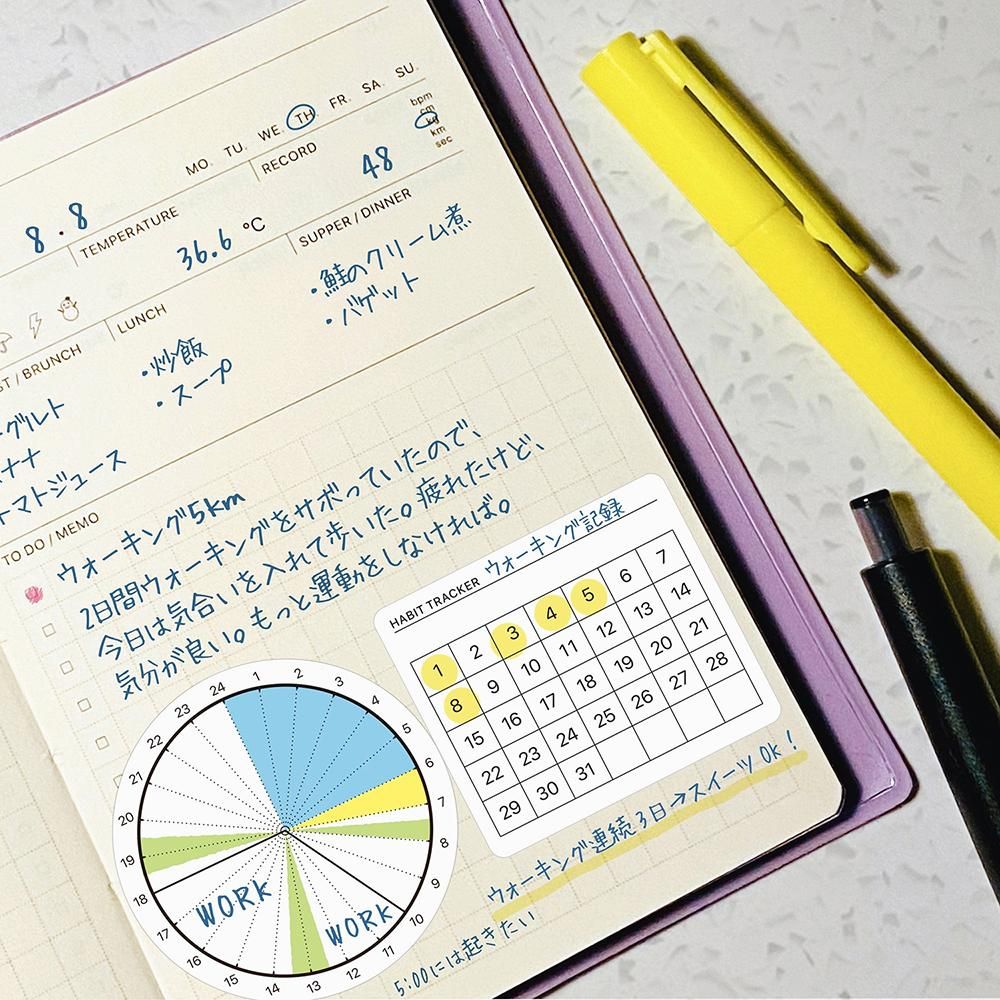 MO. TU. WE. TH. FR. SA. SU.
8.8
TEMPERATURE
36.6 °C
RECORD
48
bpm
cm
kg
km
sec
BRUNCH
グルト
ナナ
マトジュース
LUNCH
・炒飯
・スープ
SUPPER / DINNER
・鮭のクリーム煮
・バゲット
TO DO / MEMO
ウォーキング5km
2日間ウォーキングをサボっていたので、
今日は気合いを入れて歩いた。疲れたけど、
気分が良い。もっと運動をしなければ。
HABIT TRACKER ウォーキング記録
1 2 3 4 5 6 7
8 9 10 11 12 13 14
15 16 17 18 19 20 21
22 23 24 25 26 27 28
29 30 31
1 2 3 4 5 6 7 8 9 10 11 12 13 14 15 16 17 18 19 20 21 22 23 24
WORK
WORK
ウォーキング連続3日→スイーツOk!
5:00には起きたい